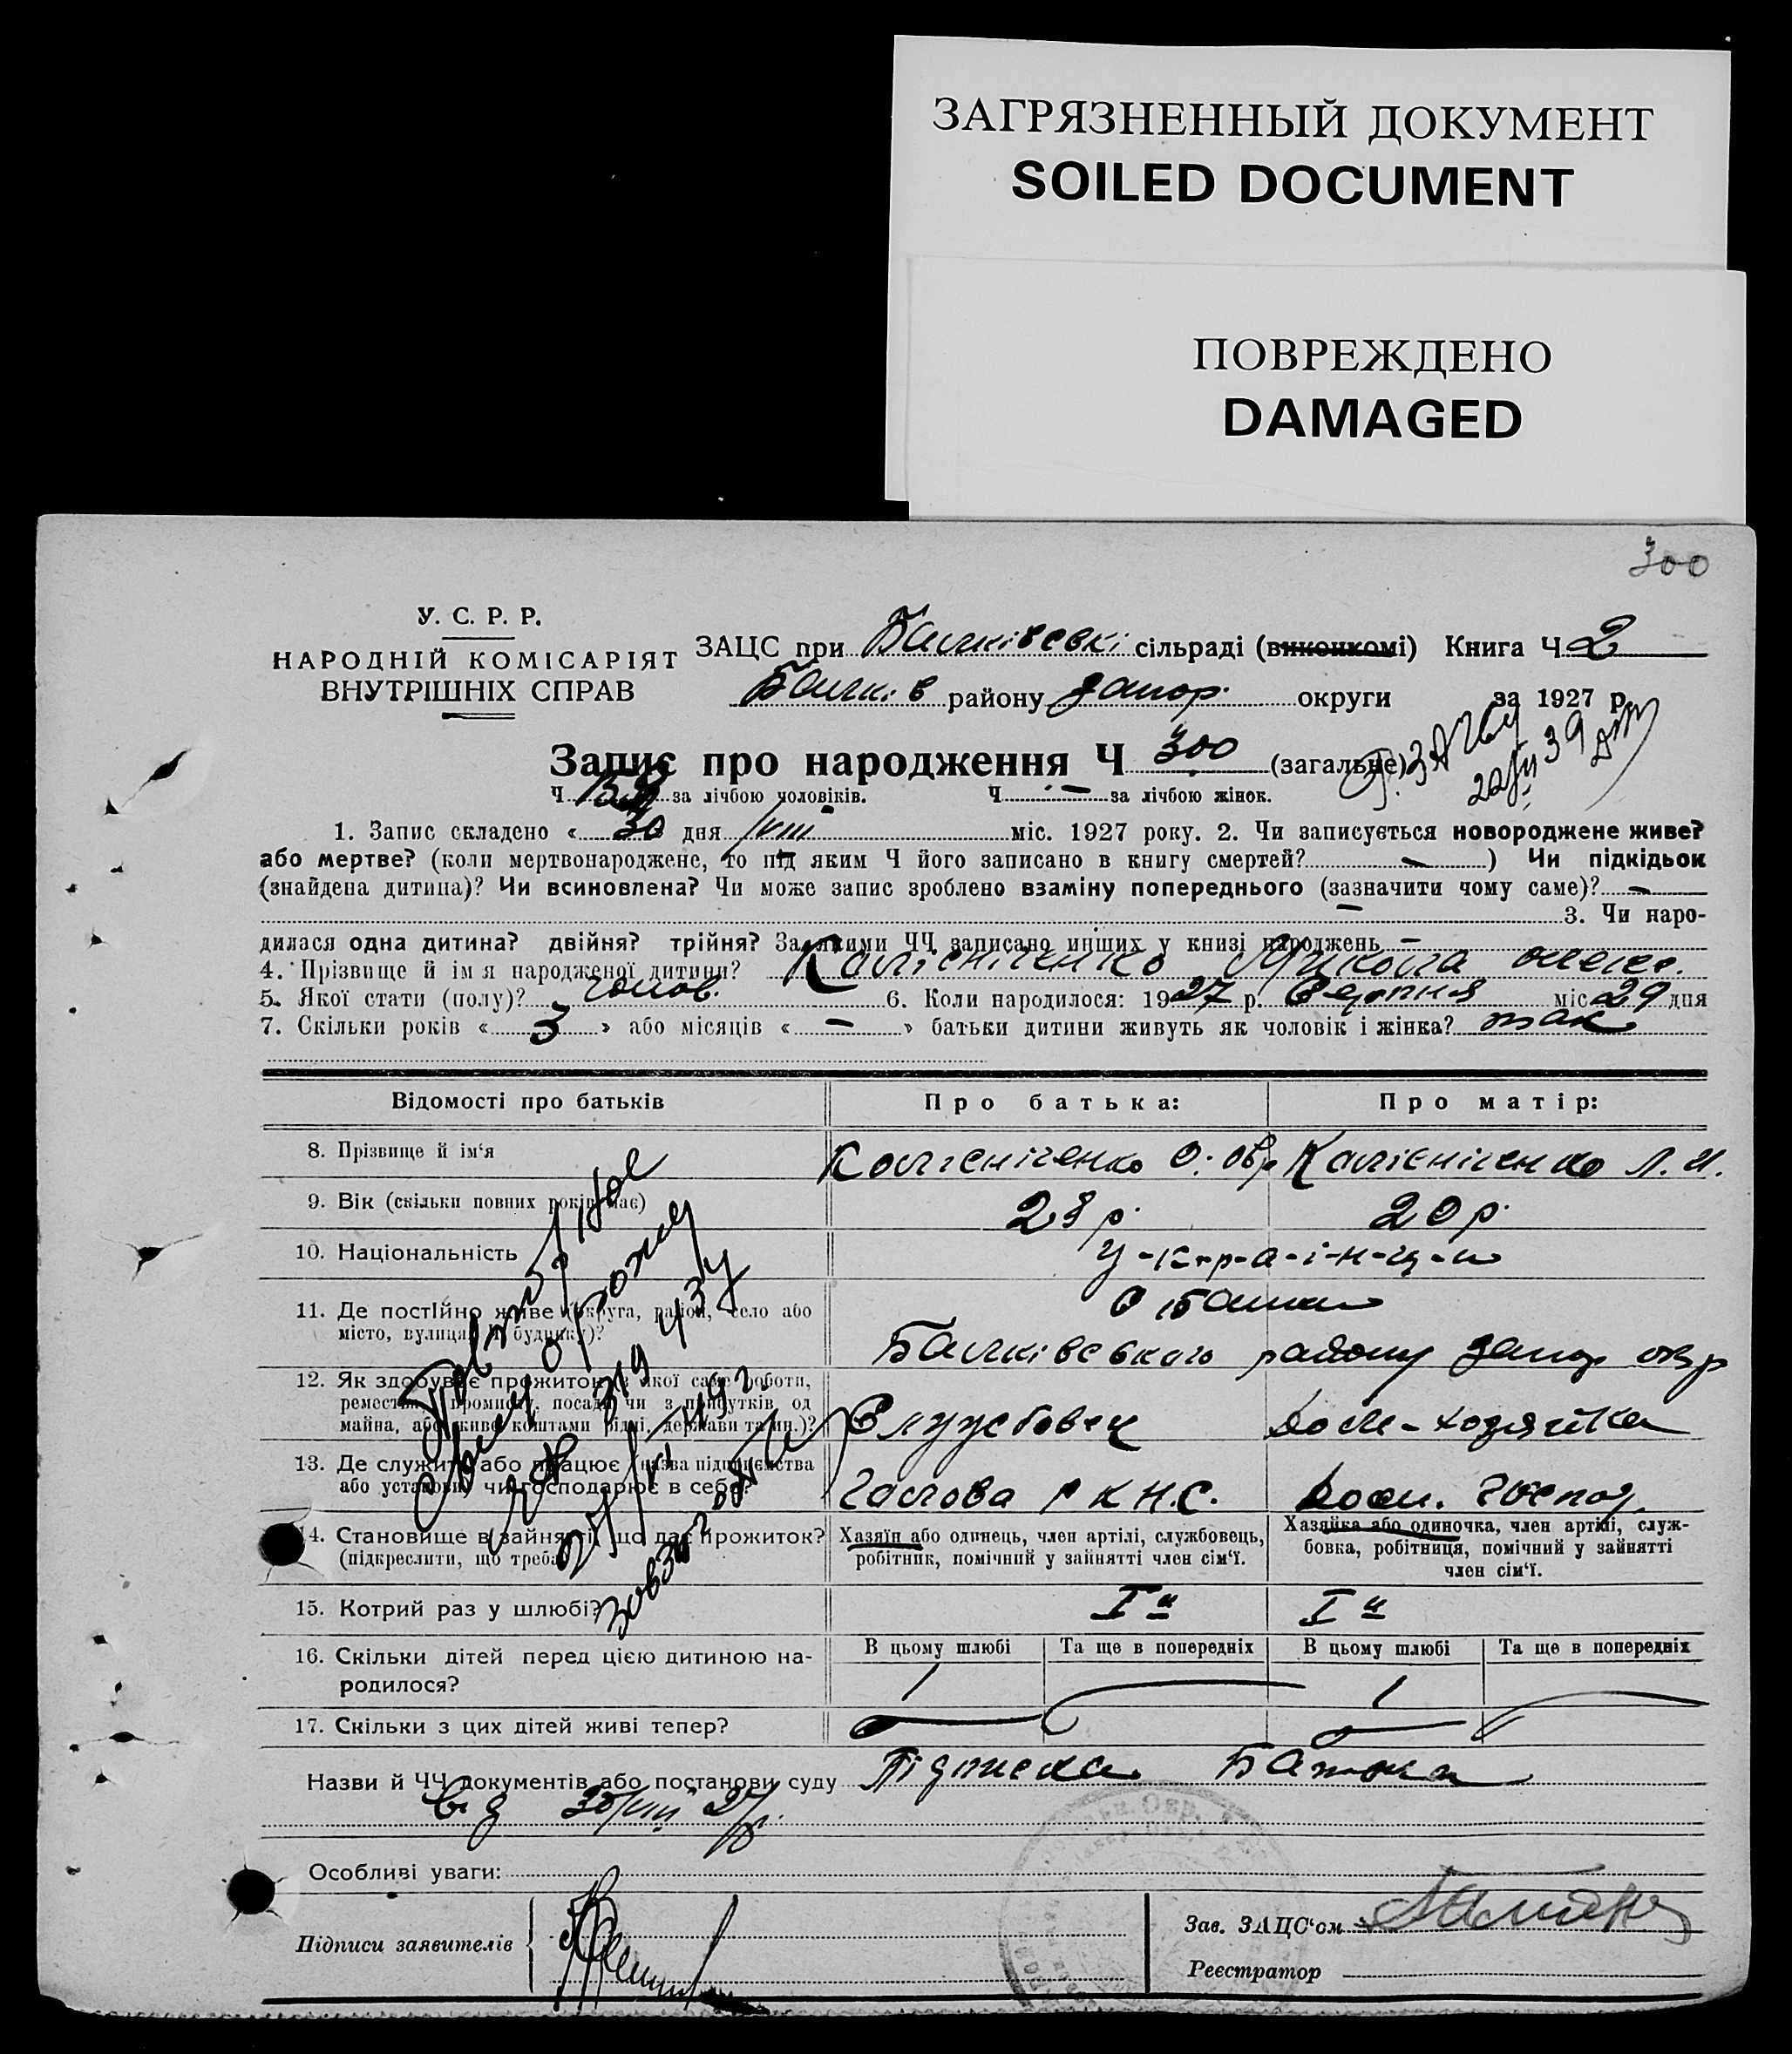 ЗАГРЯЗНЕННЫЙ ДОКУМЕНТ
SOILED DOCUMENT
ПОВРЕЖДЕНО
DAMAGED
300
У. С. Р. Р.
НАРОДНІЙ КОМІСАРІЯТ
ВНУТРІШНІХ СПРАВ
ЗАЦС при Балківські сільраді (виконкомі) Книга Ч 2
Балків району Запор. округи за 1927 р.
Запис про народження Ч 300 (загальне)
Ч за лічбою чоловіків. Ч — за лічбою жінок.
1. Запис складено « 30 » дня VIII міс. 1927 року. 2. Чи записується новороджене живе?
або мертве? (коли мертвонароджене, то під яким Ч його записано в книгу смертей? — ) Чи підкідьок
(знайдена дитина)? Чи всиновлена? Чи може запис зроблено взаміну попереднього (зазначити чому саме)? —
— 3. Чи наро-
дилася одна дитина? двійня? трійня? За якими ЧЧ записано инших у книзі народжень —
4. Прізвище й ім я народженої дитини? Калієніченко Микола
5. Якої стати (полу)? чолов. 6. Коли народилося: 1927 р. Серпня міс. 29 дня
7. Скільки років « 3 » або місяців « — » батьки дитини живуть як чоловік і жінка? так
Відомості про батьків Про батька: Про матір:
8. Прізвище й ім'я Калієніченко О. Калієніченко Л. И.
9. Вік (скільки повних років має) 23 р. 20 р.
10. Національність У-к-р-а-ї-н-ц-и
11. Де постійно живе (округа, район, село або
місто, вулиця, й будинку)? С Балки
Балківського району Запор окр
12. Як здобуває прожиток з якої саме роботи,
ремества, промислу, посади чи з прибутків од
майна, або живе коштами рідні, держави та ин.)? Службовец Дом-хозяйка
13. Де служить або працює (назва підприємства
або установи) чи господарює в себе? Голова РКНС. Дом. господ.
14. Становище в зайнятті, що дає прожиток?
(підкреслити, що треба)
Хазяїн або одинець, член артілі, службовець,
робітник, помічний у зайнятті член сім'ї.
Хазяйка або одиночка, член артілі, служ-
бовка, робітниця, помічний у зайнятті
член сім'ї.
15. Котрий раз у шлюбі? I й I й
16. Скільки дітей перед цією дитиною на-
родилося?
В цьому шлюбі Та ще в попередніх В цьому шлюбі Та ще в попередніх
1 1
17. Скільки з цих дітей живі тепер?
Назви й ЧЧ документів або постанови суду Підписка Батька
від 30/VIII 27 р.
Особливі уваги:
Підписи заявителів
Зав. ЗАЦС'ом
Реєстратор